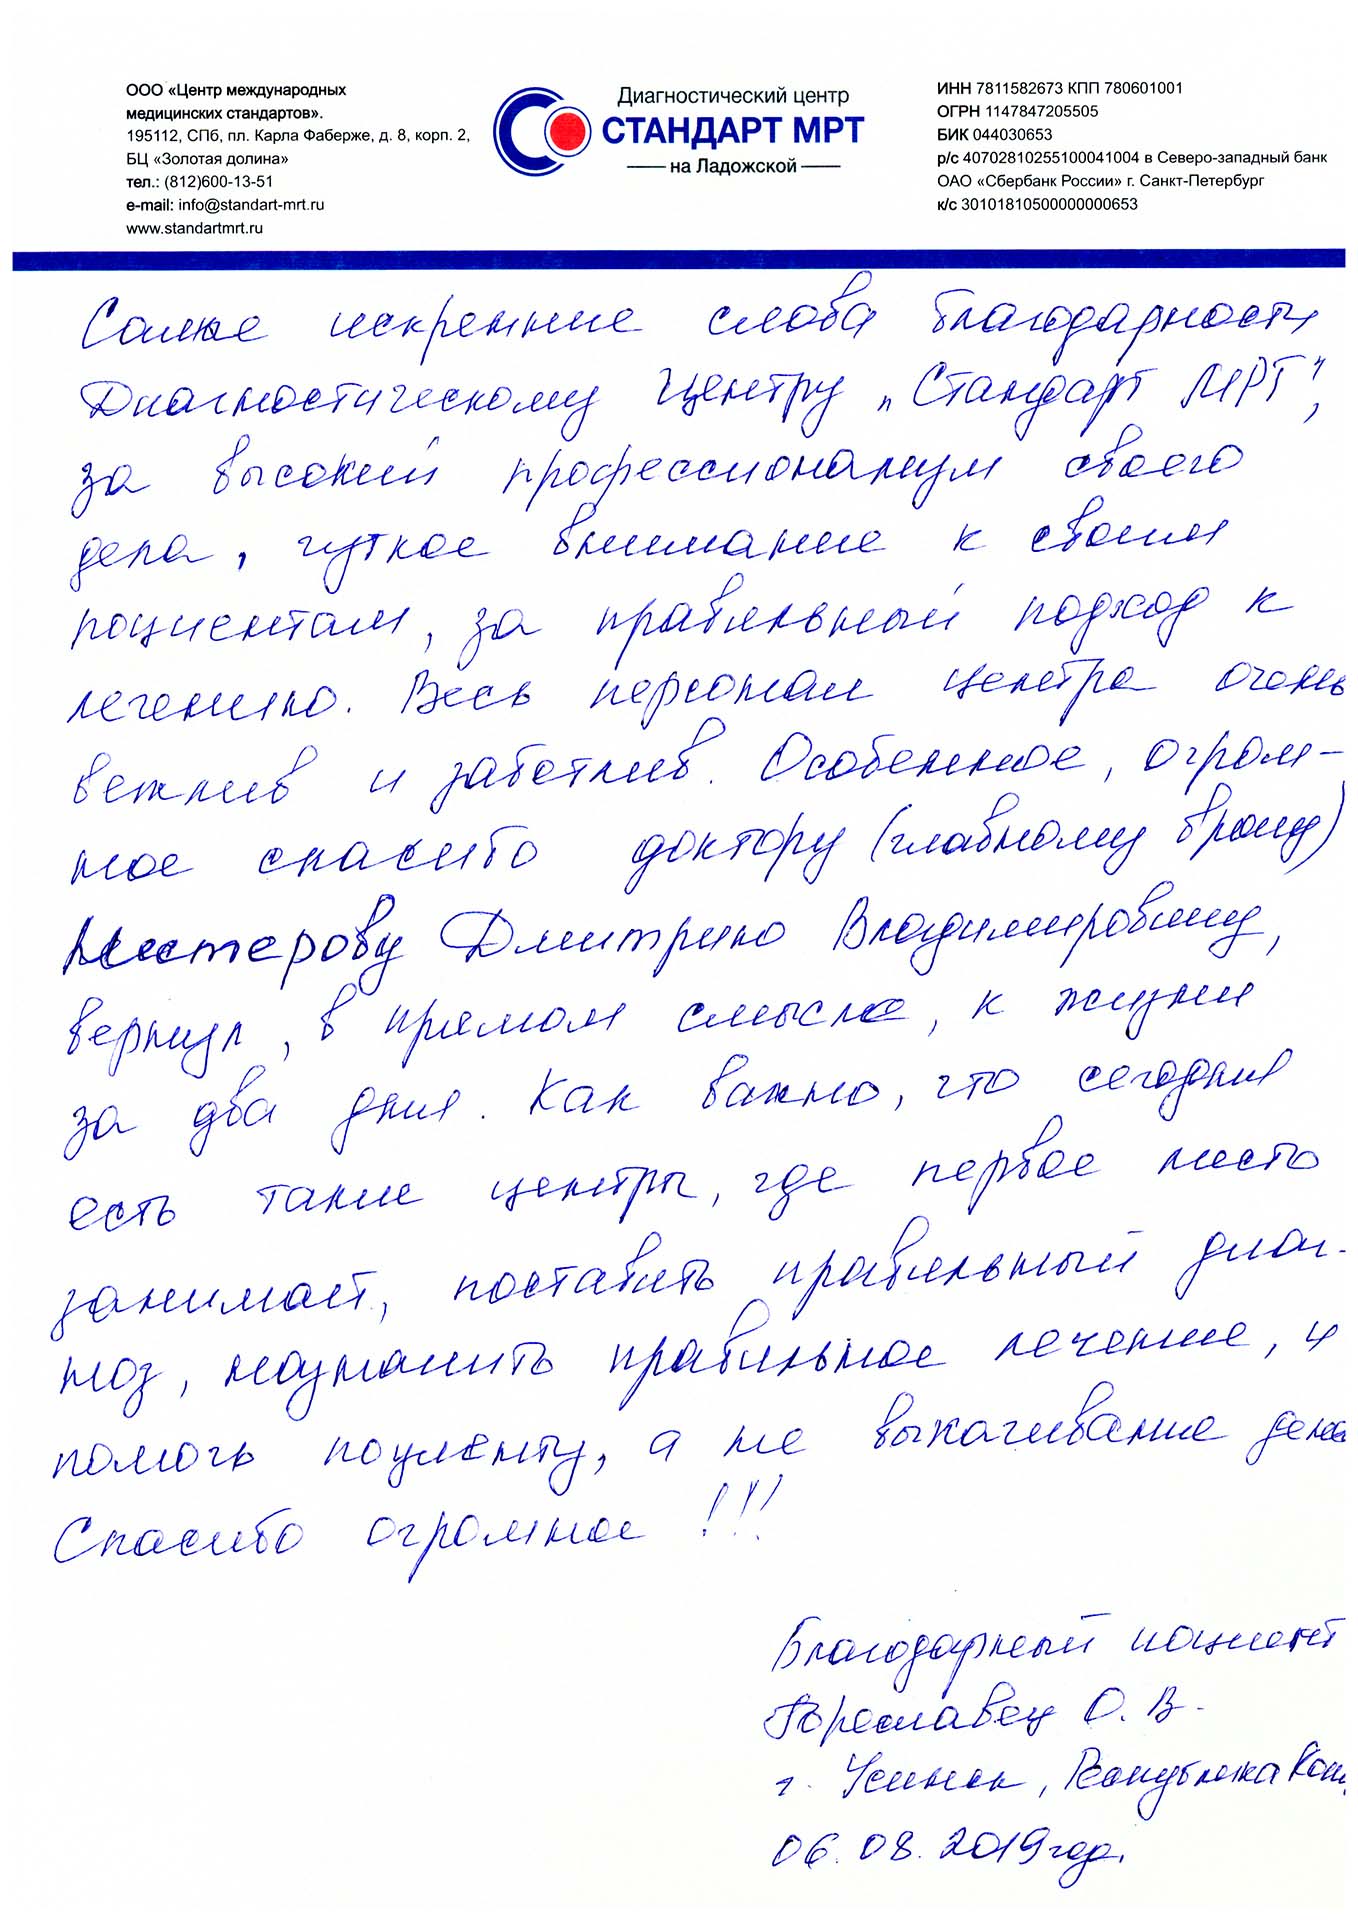 ООО «Центр международных
медицинских стандартов».
195112, СПб, пл. Карла Фаберже, д. 8, корп. 2,
БЦ «Золотая долина»
тел.: (812)600-13-51
e-mail: info@standart-mrt.ru
www.standartmrt.ru
Диагностический центр
СТАНДАРТ МРТ
на Ладожской
ИНН 7811582673 КПП 780601001
ОГРН 1147847205505
БИК 044030653
р/с 40702810255100041004 в Северо-западный банк
ОАО «Сбербанк России» г. Санкт-Петербург
к/с 30101810500000000653
Самые искренние слова благодарности
Диагностическому Центру „Стандарт МРТ",
за высокий профессионализм своего
дела, чуткое внимание к своим
пациентам, за правильный подход к
лечению. Весь персонал центра очень
вежлив и заботлив. Особенное, огром-
ное спасибо доктору (главному врачу)
Нестерову Дмитрию Владимировичу,
вернул, в прямом смысле, к жизни
за два дня. Как важно, что сегодня
есть такие центры, где первое место
занимает, поставить правильный диаг-
ноз, назначить правильное лечение, и
помочь пациенту, а не выкачивание дене
Спасибо огромное!!!
Благодарный пациент
О. В.
г. Усинск, Республика Коми,
06.08.2019 год.